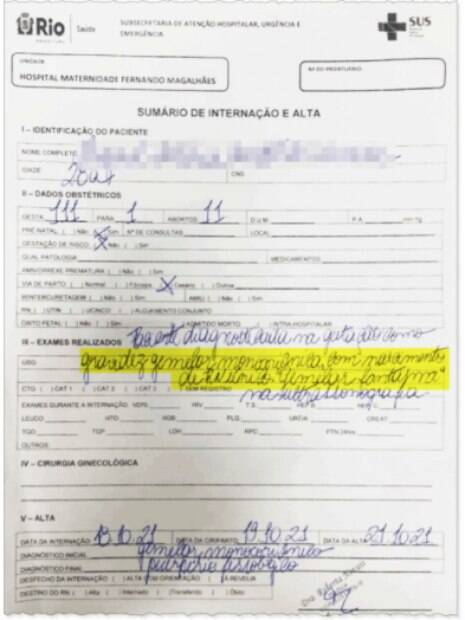 Rio
PREFEITURA
Saúde
SUBSECRETARIA DE ATENÇÃO HOSPITALAR, URGÊNCIA E
EMERGÊNCIA
SUS
UNIDADE
HOSPITAL MATERNIDADE FERNANDO MAGALHÃES
Nº DO PRONTUÁRIO
SUMÁRIO DE INTERNAÇÃO E ALTA
I – IDENTIFICAÇÃO DO PACIENTE
NOME COMPLETO
IDADE 20a CNS
II – DADOS OBSTÉTRICOS
GESTA 111 PARA 1 ABORTOS 11 D.U.M P.A mmHg
PRÉ-NATAL ( ) Não (X) Sim Nº DE CONSULTAS LOCAL
GESTAÇÃO DE RISCO (X) Não ( ) Sim
QUAL PATOLOGIA MEDICAMENTOS
AMNIORREXE PREMATURA ( ) Não ( ) Sim
VIA DE PARTO ( ) Normal ( ) Fórceps (X) Cesárea ( ) Outros
WINTERCURETAGEM ( ) Não ( ) Sim AMIU ( ) Não ( ) Sim
RN ( ) UTIN ( ) UCINCO ( ) ALOJAMENTO CONJUNTO
ÓBITO FETAL ( ) Não ( ) Sim INTRA HOSPITALAR
III – EXAMES REALIZADOS Paciente diagnosticada na gestação como
USG gravidez gemelar monocoriônica, com nascimento
de "gemelar fantasma"
CTG ( ) CAT 1 ( ) CAT 2 ( ) CAT 3 ( ) SEM REGISTRO na ultrassonografia
EXAMES DURANTE A INTERNAÇÃO VDRL HIV T.S.
LEUCO HTO HGB PLQ URÉIA CREAT
TGO TGP LDH RPC PTN 24hs
OUTROS
IV – CIRURGIA GINECOLÓGICA
V – ALTA
DATA DA INTERNAÇÃO 19.10.21 DATA DA CIR/PARTO 19.10.21 DATA DA ALTA 21.10.21
DIAGNÓSTICO INICIAL gemelar monocoriônico
DIAGNÓSTICO FINAL puerpério fisiológico
DESFECHO DA INTERNAÇÃO ( ) ALTA COM ORIENTAÇÃO ( ) A REVELIA
DESTINO DO RN ( ) Alta ( ) Internado ( ) Transferido ( ) Óbito